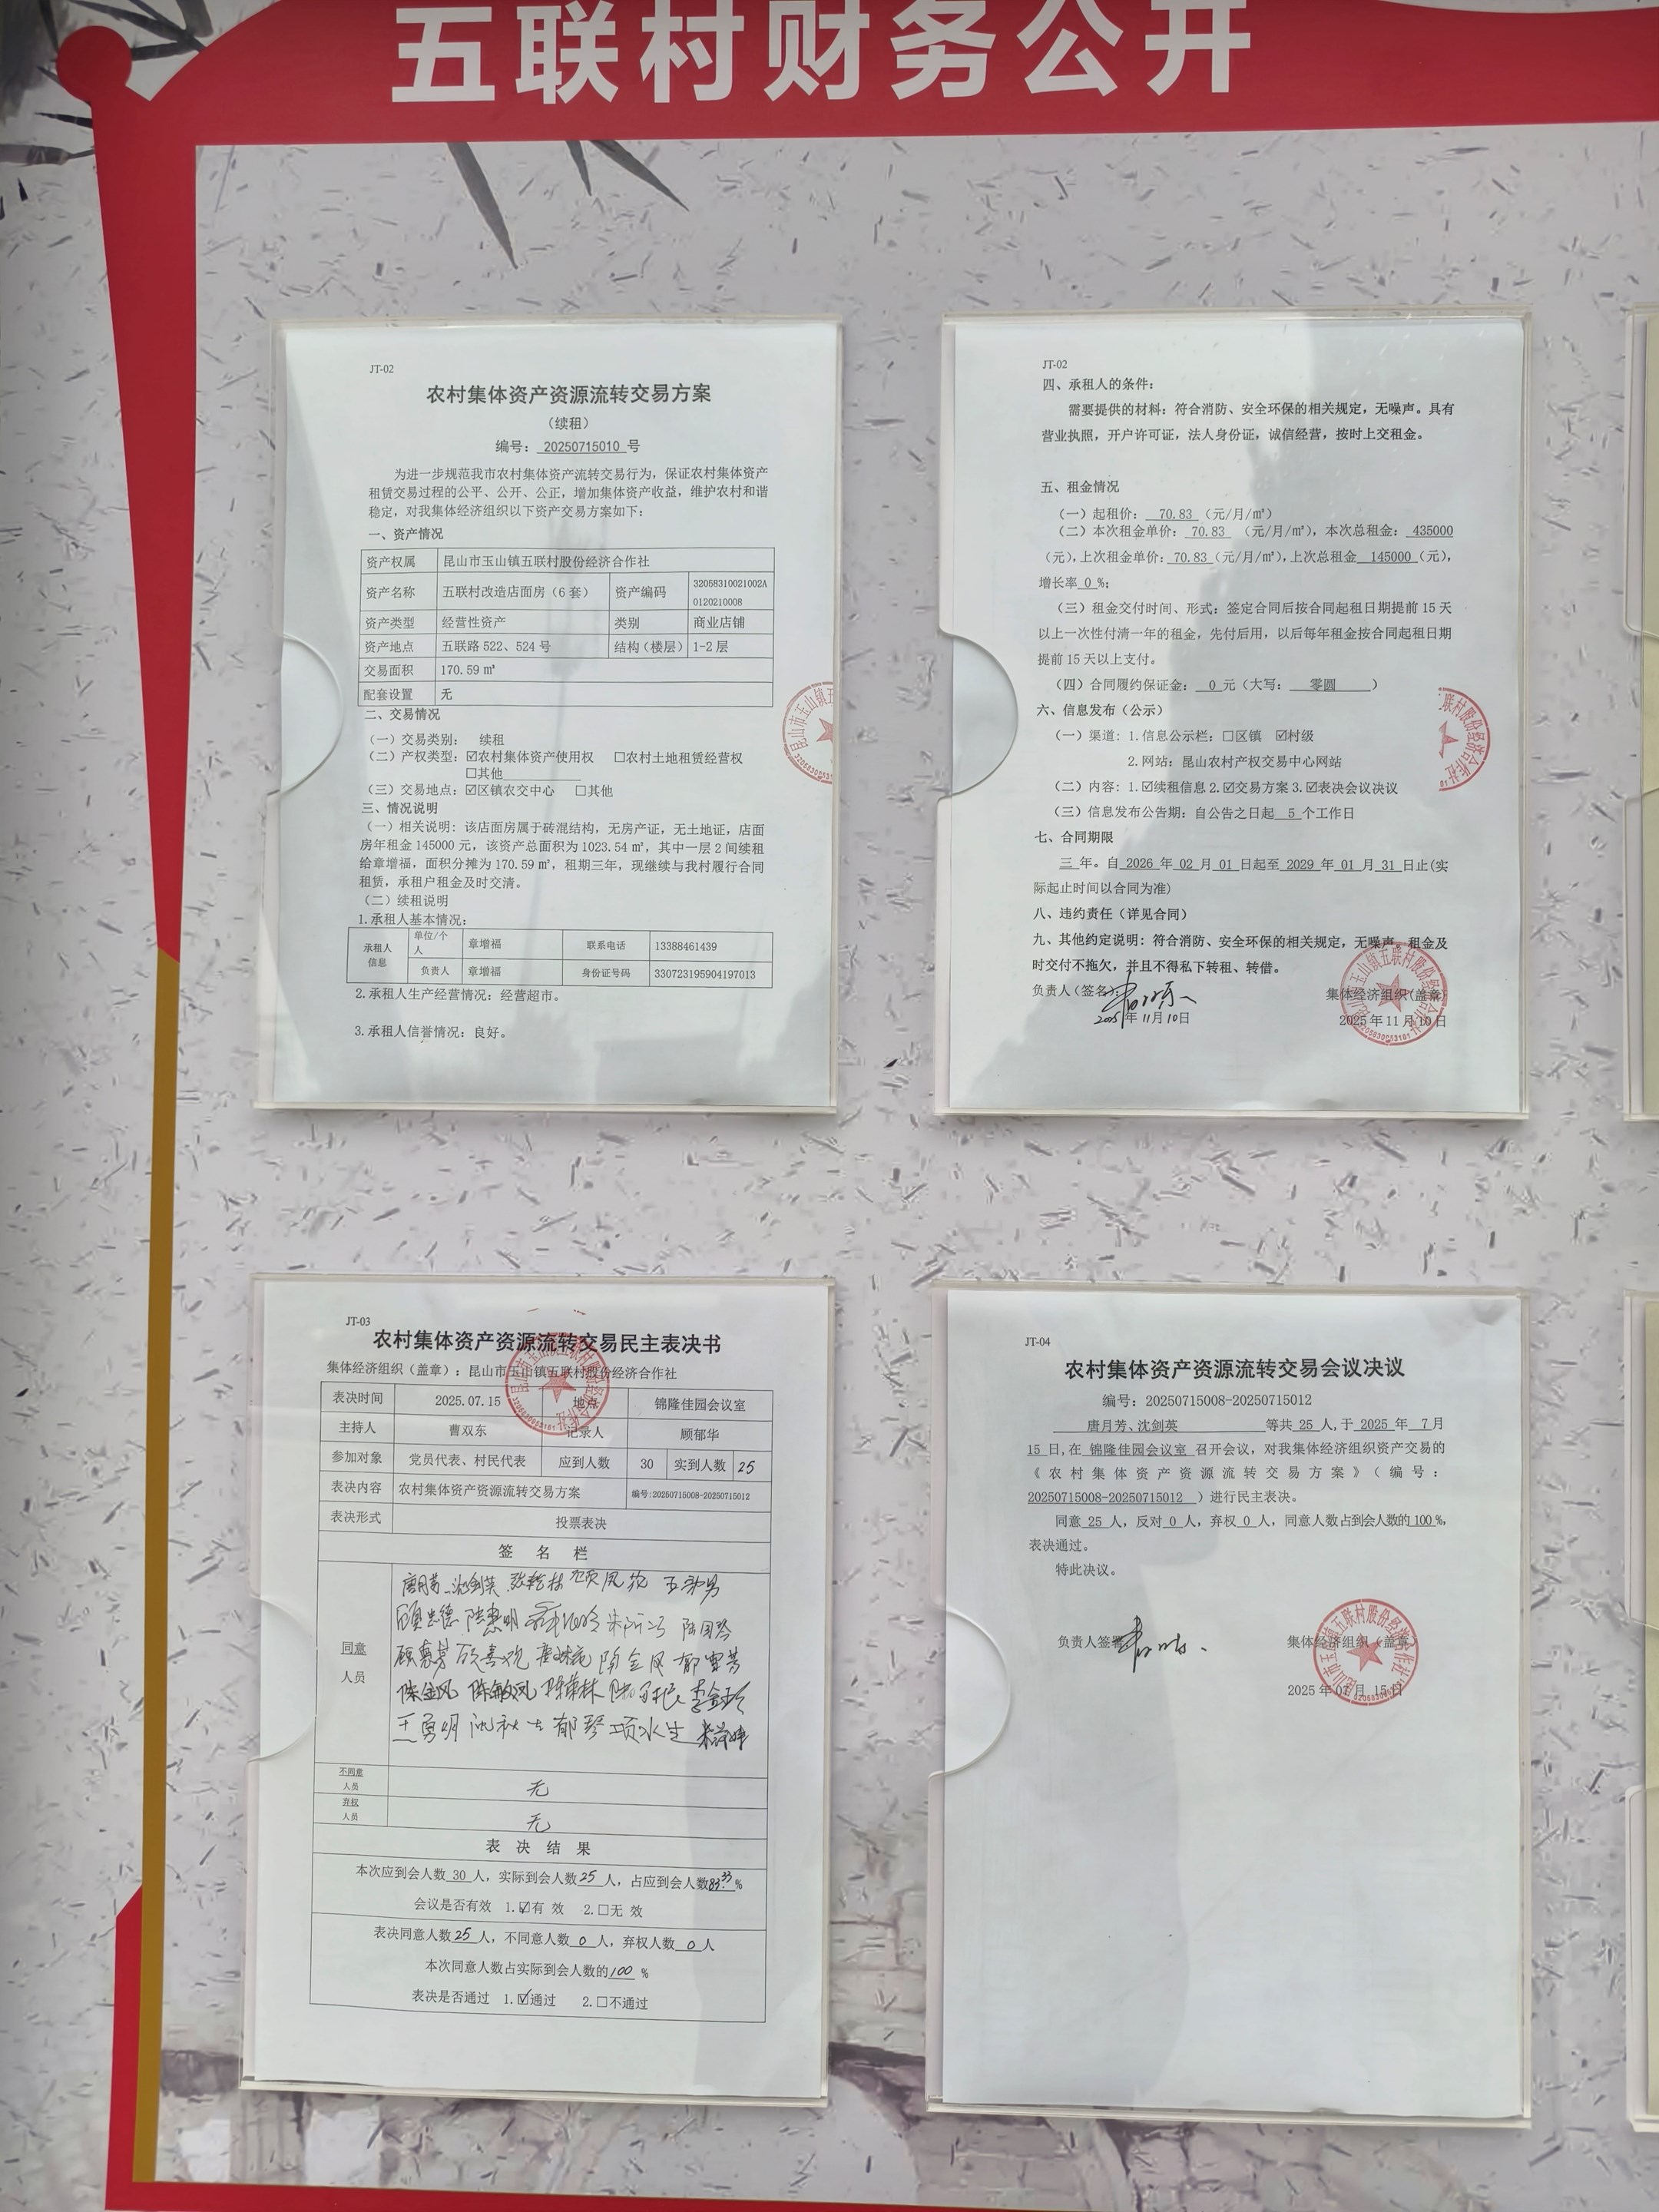 五联村财务公开
JT-02
农村集体资产资源流转交易方案
(续租)
编号： 20250715010 号
为进一步规范我市农村集体资产流转交易行为，保证农村集体资产
租赁交易过程的公平、公开、公正，增加集体资产收益，维护农村和谐
稳定，对我集体经济组织以下资产交易方案如下：
一、资产情况
资产权属 昆山市玉山镇五联村股份经济合作社
资产名称 五联村改造店面房（6 套） 资产编码 32058310021002A
0120210008
资产类型 经营性资产 类别 商业店铺
资产地点 五联路 522、524 号 结构（楼层） 1-2 层
交易面积 170.59 ㎡
配套设置 无
二、交易情况
（一）交易类别： 续租
（二）产权类型：☑农村集体资产使用权 □农村土地租赁经营权
□其他
（三）交易地点：☑区镇农交中心 □其他
三、情况说明
（一）相关说明：该店面房属于砖混结构，无房产证，无土地证，店面
房年租金 145000 元，该资产总面积为 1023.54 ㎡，其中一层 2 间续租
给章增福，面积分摊为 170.59 ㎡，租期三年，现继续与我村履行合同
租赁，承租户租金及时交清。
（二）续租说明
1.承租人基本情况：
承租人信息 单位/个人 章增福 联系电话 13388461439
负责人 章增福 身份证号码 330723195904197013
2.承租人生产经营情况：经营超市。
3.承租人信誉情况：良好。
JT-02
四、承租人的条件：
需要提供的材料：符合消防、安全环保的相关规定，无噪声。具有
营业执照，开户许可证，法人身份证，诚信经营，按时上交租金。
五、租金情况
（一）起租价： 70.83 （元/月/㎡）
（二）本次租金单价： 70.83 （元/月/㎡），本次总租金： 435000
（元），上次租金单价：70.83（元/月/㎡），上次总租金 145000（元），
增长率 0 %；
（三）租金交付时间、形式：签定合同后按合同起租日期提前 15 天
以上一次性付清一年的租金，先付后用，以后每年租金按合同起租日期
提前 15 天以上支付。
（四）合同履约保证金： 0 元（大写： 零圆 ）
六、信息发布（公示）
（一）渠道：1.信息公示栏：□区镇 ☑村级
2.网站：昆山农村产权交易中心网站
（二）内容：1.☑续租信息 2.☑交易方案 3.☑表决会议决议
（三）信息发布公告期：自公告之日起 5 个工作日
七、合同期限
三 年。自 2026 年 02 月 01 日起至 2029 年 01 月 31 日止(实
际起止时间以合同为准)
八、违约责任（详见合同）
九、其他约定说明：符合消防、安全环保的相关规定，无噪声，租金及
时交付不拖欠，并且不得私下转租、转借。
负责人（签名）： 集体经济组织(盖章)
2025 年 11 月 10 日 2025 年 11 月 10 日
JT-03
农村集体资产资源流转交易民主表决书
集体经济组织（盖章）：昆山市玉山镇五联村股份经济合作社
表决时间 2025.07.15 地点 锦隆佳园会议室
主持人 曹双东 记录人 顾郁华
参加对象 党员代表、村民代表 应到人数 30 实到人数 25
表决内容 农村集体资产资源流转交易方案 编号:20250715008-20250715012
表决形式 投票表决
签 名 栏
同意
人员
陈金凤 陈敏凤
郁琴 项水生
不同意
人员 无
弃权
人员 无
表 决 结 果
本次应到会人数 30 人，实际到会人数 25 人，占应到会人数 83.33 %
会议是否有效 1.☑有 效 2.□无 效
表决同意人数 25 人，不同意人数 0 人，弃权人数 0 人
本次同意人数占实际到会人数的 100 %
表决是否通过 1.☑通过 2.□不通过
JT-04
农村集体资产资源流转交易会议决议
编号：20250715008-20250715012
唐月芳、沈剑英 等共 25 人，于 2025 年 7 月
15 日，在 锦隆佳园会议室 召开会议，对我集体经济组织资产交易的
《农村集体资产资源流转交易方案》（编号：
20250715008-20250715012 ）进行民主表决。
同意 25 人，反对 0 人，弃权 0 人，同意人数占到会人数的 100 %，
表决通过。
特此决议。
负责人签署 集体经济组织（盖章）
2025 年 07 月 15 日